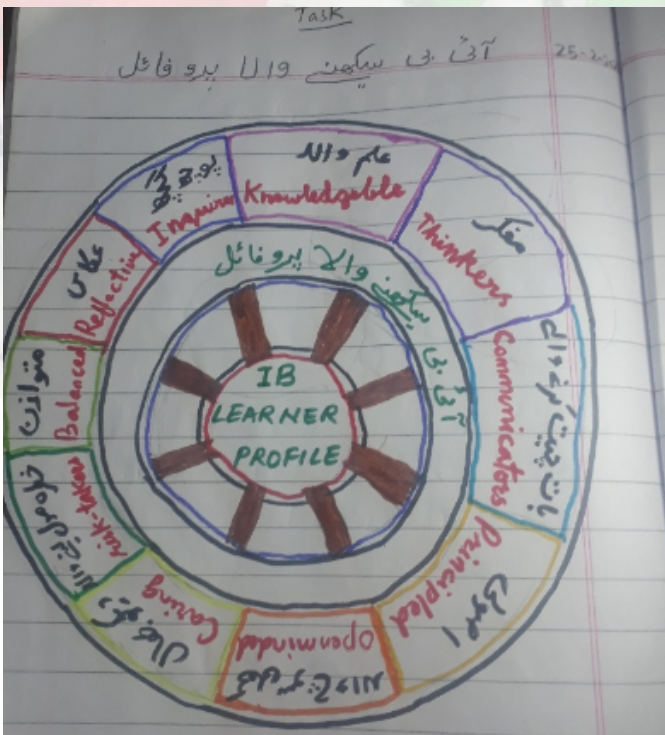 Task
آئی بی سیکھنے والا پروفائل
علم والا
Knowledgable
مفکر
Thinkers
بات چیت کرنے والے
Communicators
اصولی
Principled
Openminded
دیکھ بھال
Caring
risk-takers
متوازن
Balanced
عکاس
Reflective
پوچھ گچھ
Inquirers
آئی بی سیکھنے والا پروفائل
IB
LEARNER
PROFILE